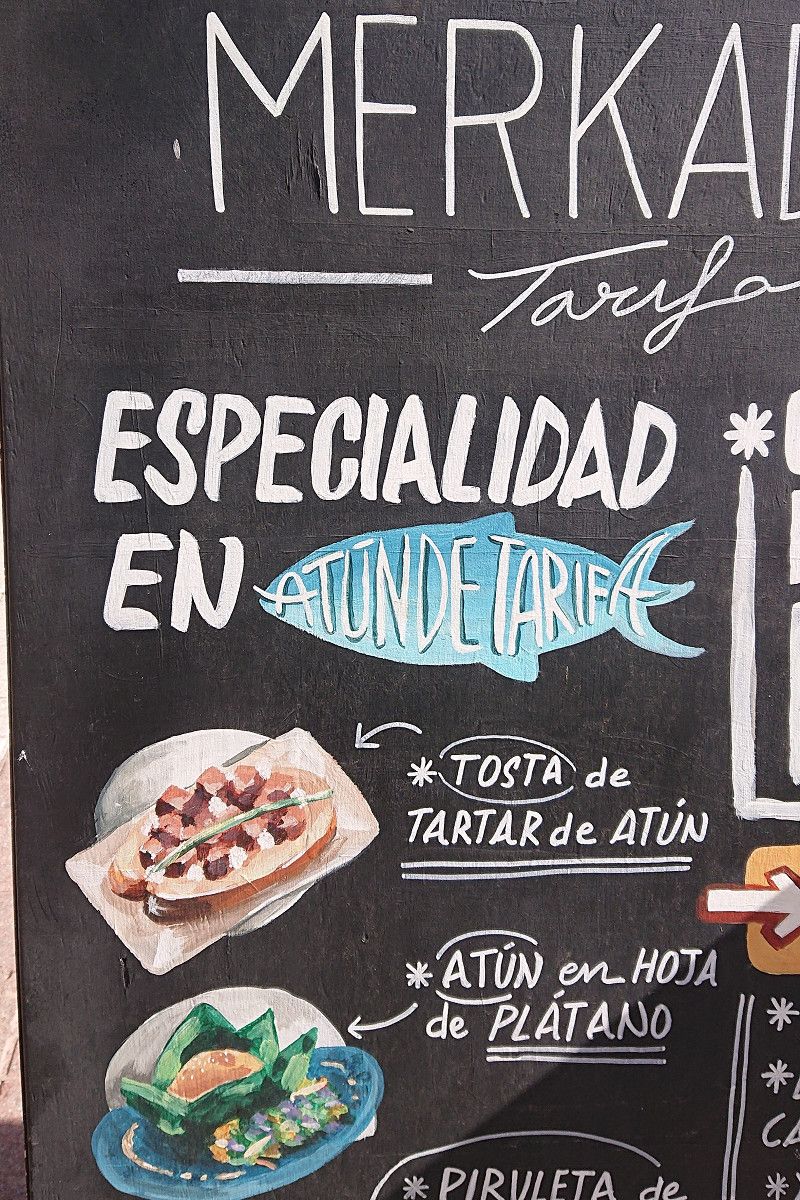 MERKA
Tarifa
ESPECIALIDAD
EN ATÚN DE TARIFA
* TOSTA de
TARTAR de ATÚN
* ATÚN en HOJA
de PLÁTANO
* PIRULETA de